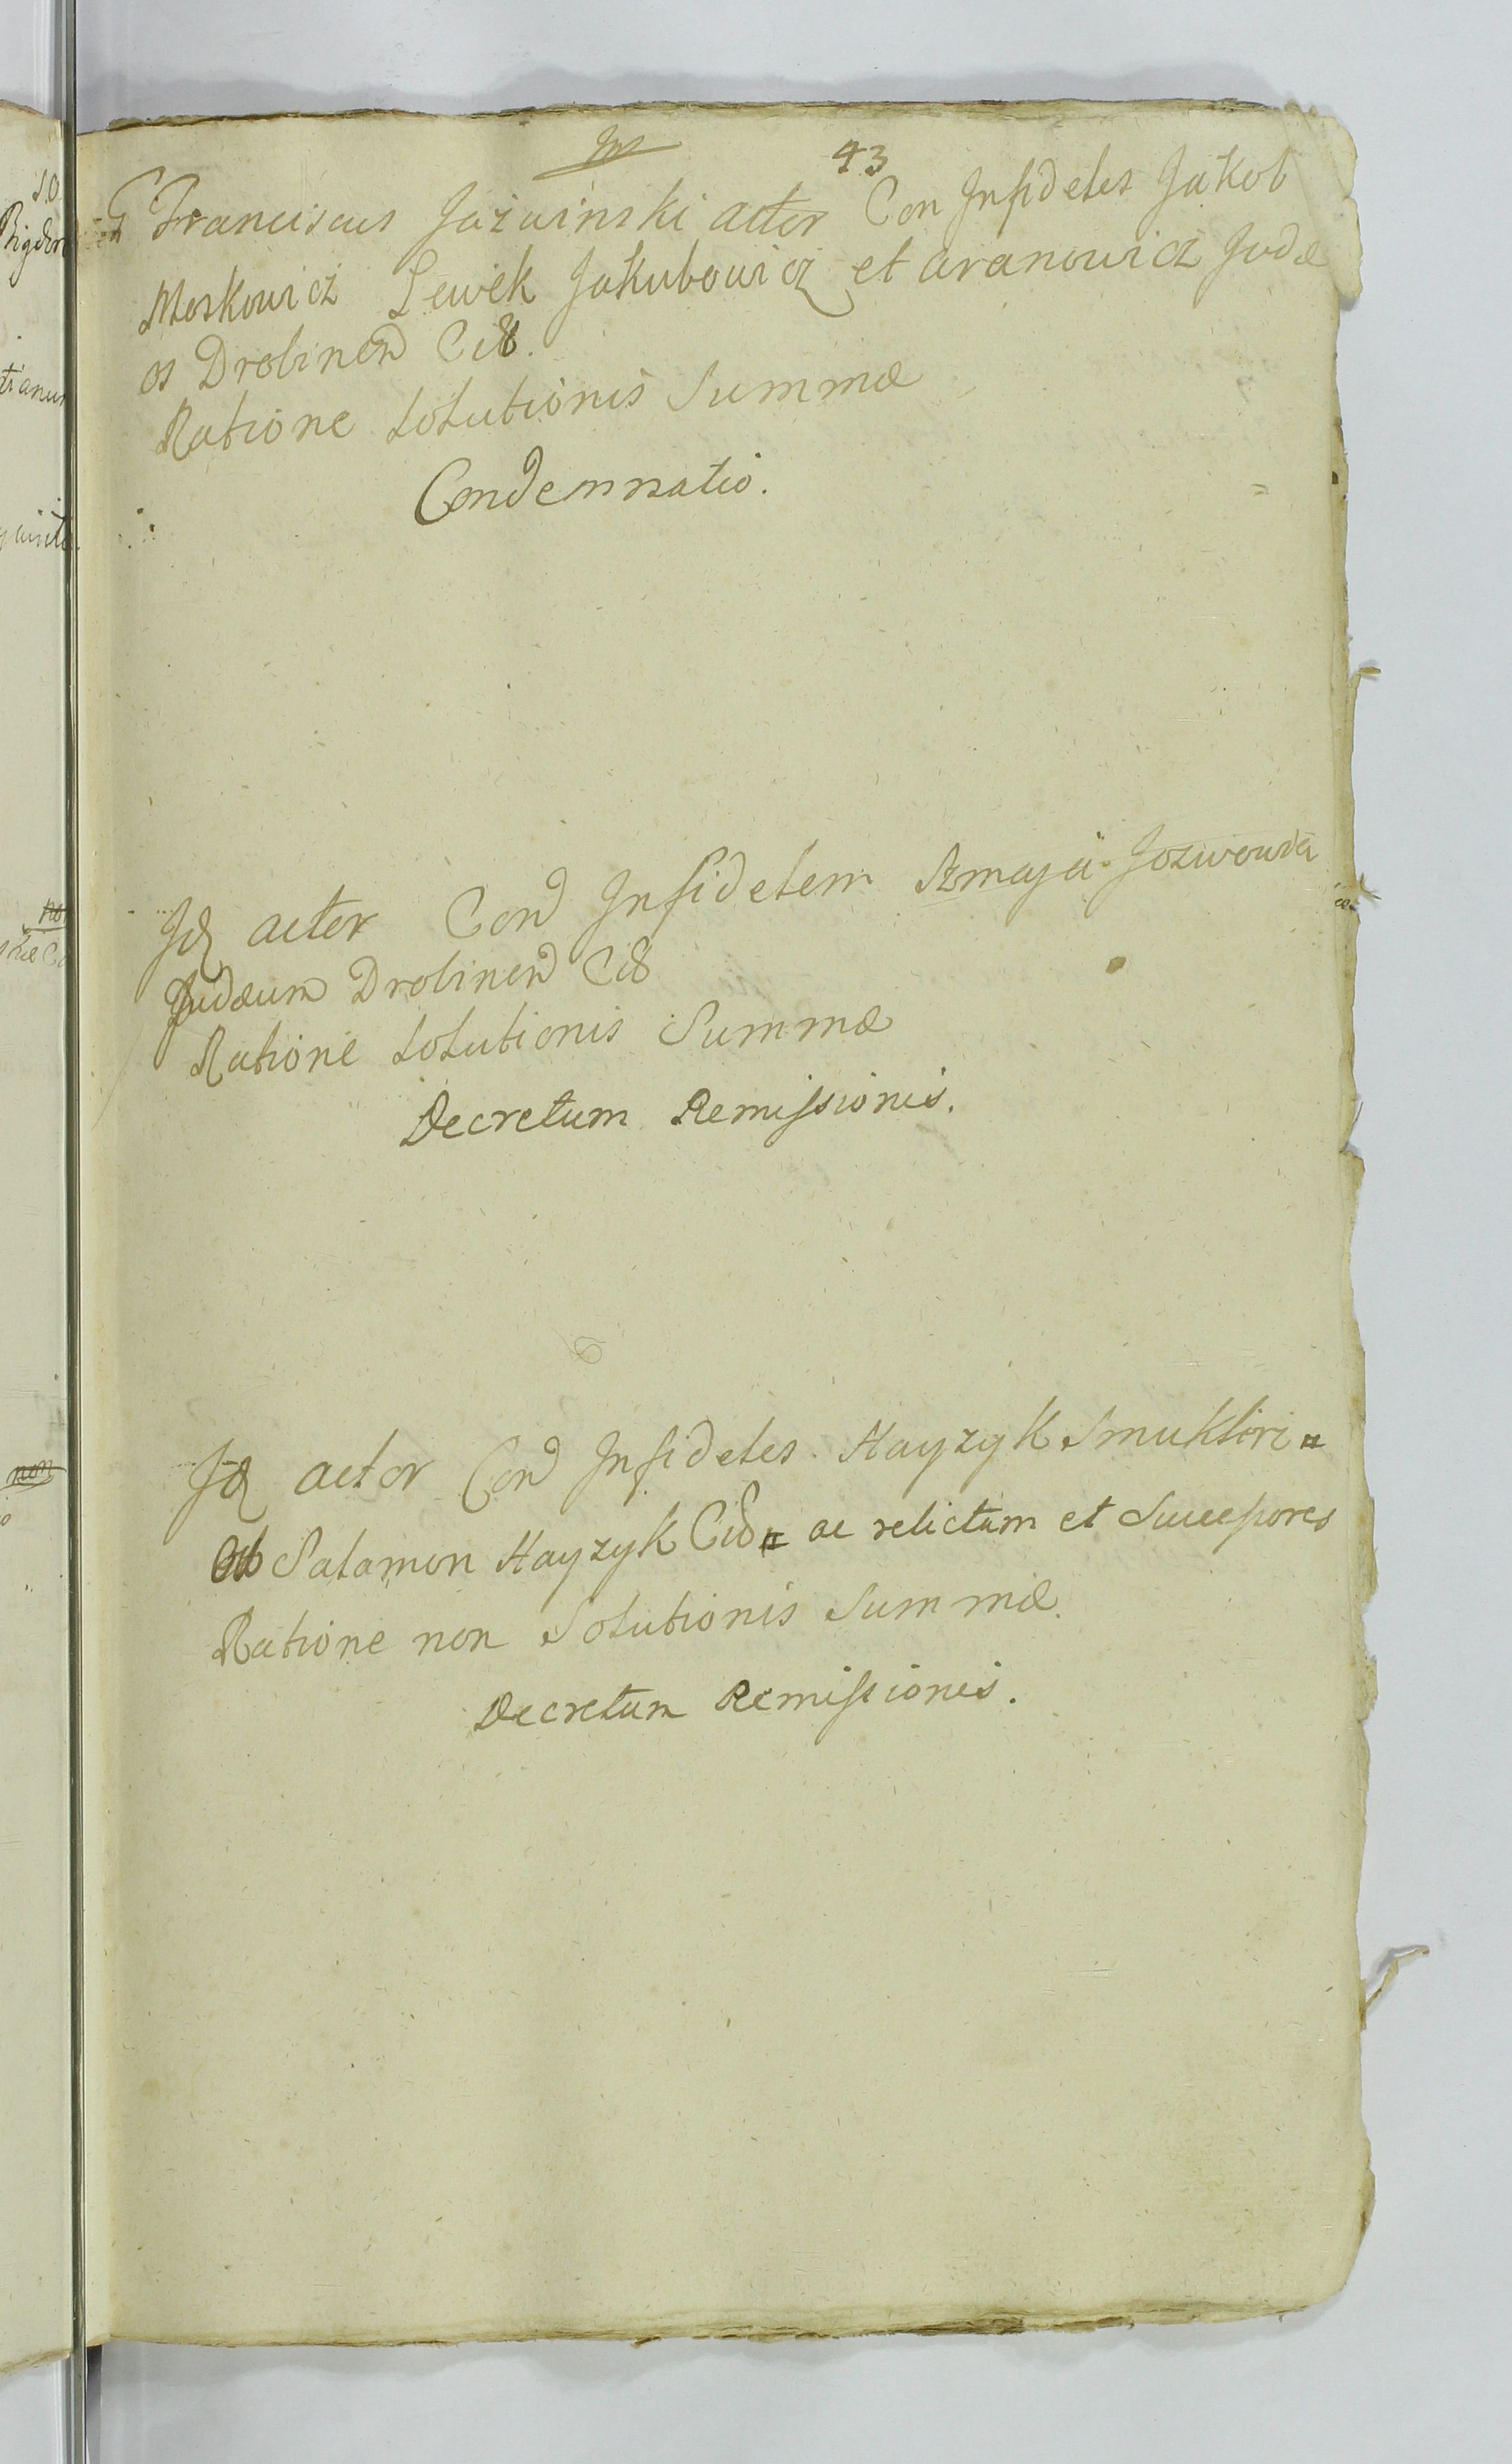 43
G Franciscus Jażwinski actor Con Infideles Jakob
Moskowicz Lewek Jakubowicz et aranowicz Judæ
os Drobinen Cit.
Ratione Solutionis Summæ
Condemnatio.
Jd actor Con Infidelem Szmaja Jozwowicz
Judæum Drobinen Cit
Ratione Solutionis Summæ
Decretum Remissionis.
Jd actor Con Infideles Hayzyk Smuklori
Salamon Hayzyk Cit ac relictam et Successores
Ratione non Solutionis Summæ.
Decretum Remissionis.